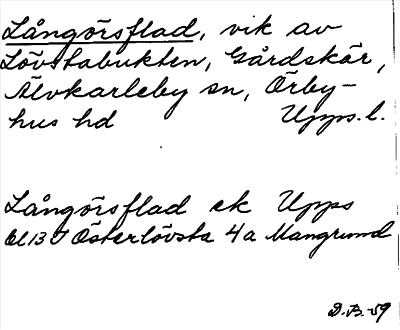 Långörsflad, vik av
Lövstabukten, Gårdskär,
Älvkarleby sn, Örby-
hus hd Upps. l.
Långörsflad ek Upps
bl 13 J Österlövsta 4a Mangrund
D.B.-59